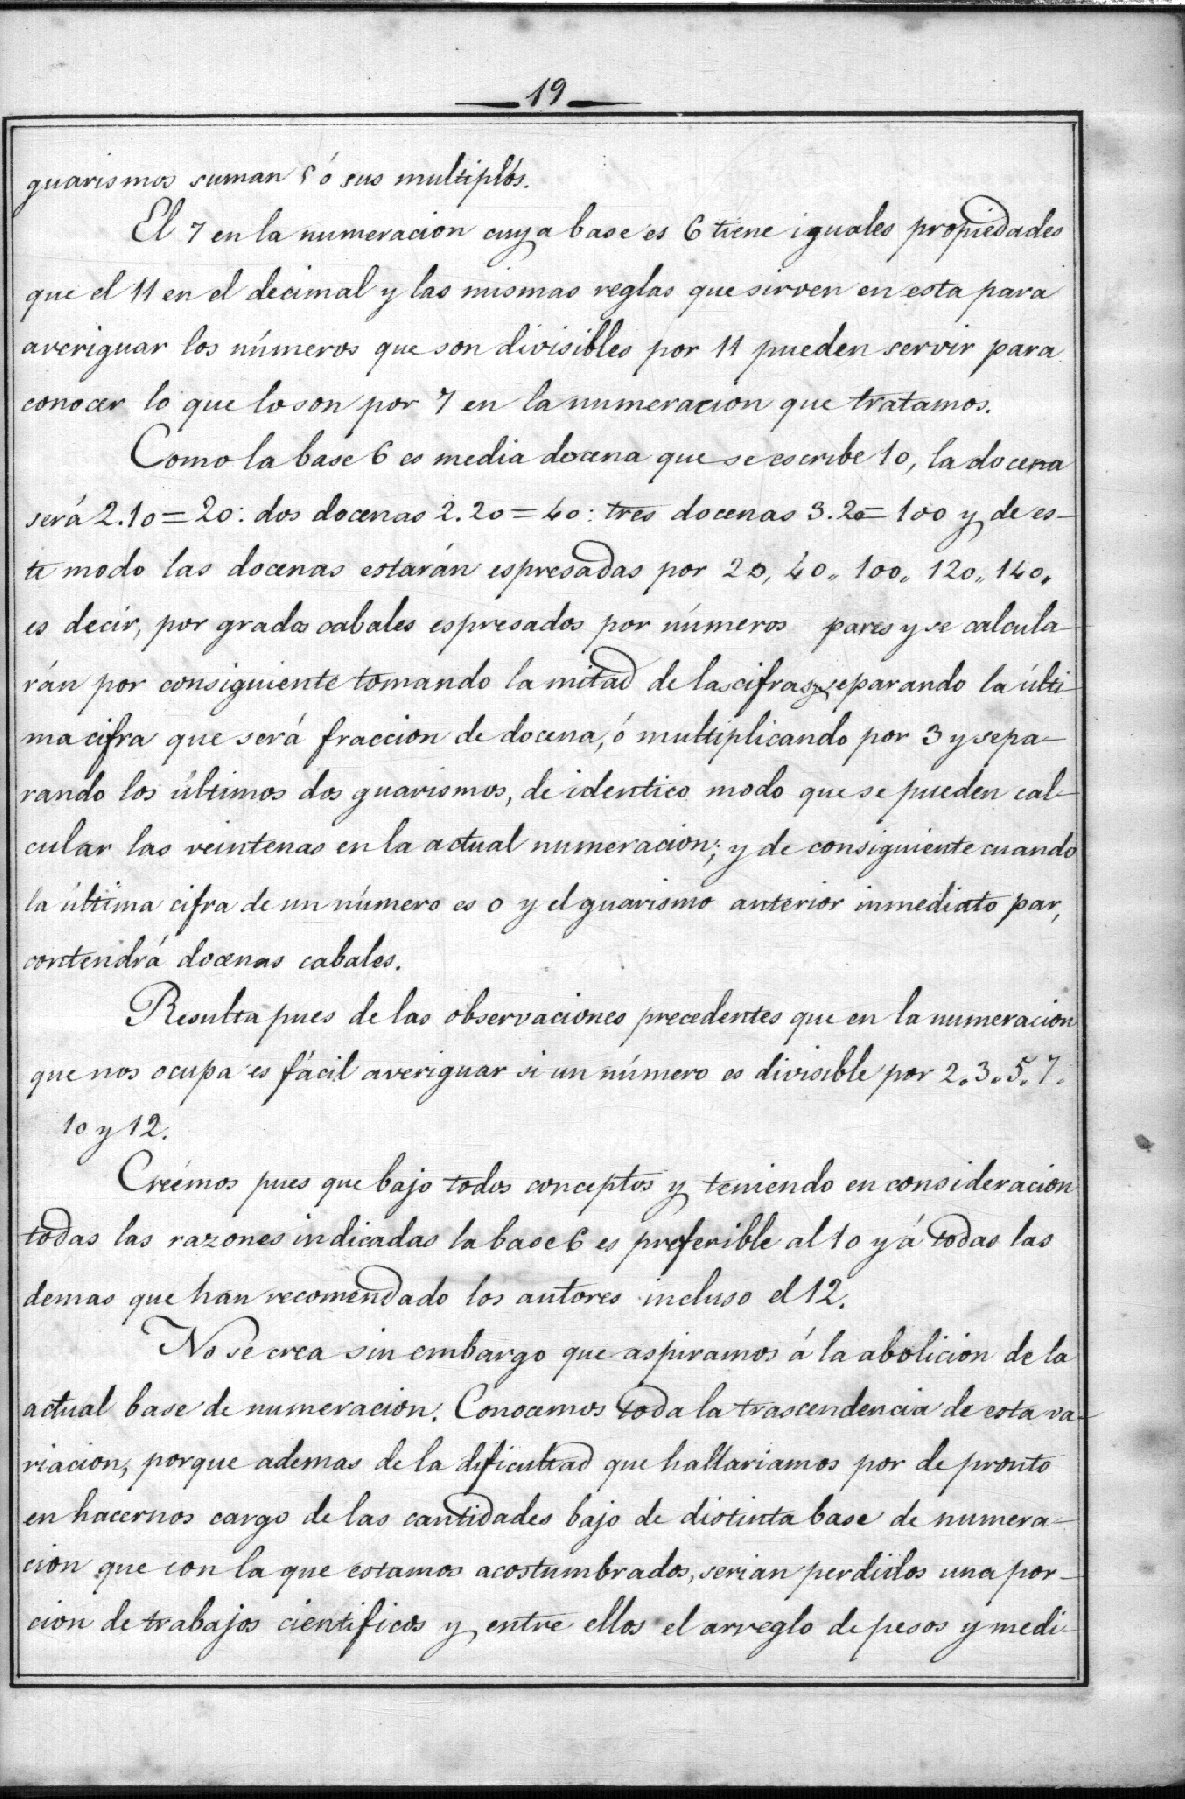 19
guarismos suman 5 ó sus multiplós.
El 7 en la numeracion cuya base es 6 tiene iguales propiedades
que el 11 en el decimal y las mismas reglas que sirven en esta para
averiguar los números que son divisibles por 11 pueden servir para
conocer lo que lo son por 7 en la numeracion que tratamos.
Como la base 6 es media docena que se escribe 10, la docena
será 2.10=20: dos docenas 2.20=40: tres docenas 3.20=100 y de es-
te modo las docenas estarán espresadas por 20, 40,, 100,, 120,, 140,
es decir, por grados cabales espresados por números pares y se calcula-
rán por consiguiente tomando la mitad de las cifras y separando la últi-
ma cifra que será fraccion de docena, ó multiplicando por 3 y sepa-
rando los últimos dos guarismos, de identico modo que se pueden cal-
cular las veintenas en la actual numeracion; y de consiguiente cuando
la última cifra de un número es 0 y el guarismo anterior inmediato par,
contendrá docenas cabales.
Resulta pues de las observaciones precedentes que en la numeracion
que nos ocupa es fácil averiguar si un número es divisible por 2,,3,,5,,7,
10 y 12.
Creémos pues que bajo todos conceptos y teniendo en consideracion
todas las razones indicadas la base 6 es preferible al 10 y á todas las
demas que han recomendado los autores incluso el 12.
No se crea sin embargo que aspiramos á la abolicion de la
actual base de numeracion. Conocemos toda la trascendencia de esta va-
riacion, porque ademas de la dificultad que hallariamos por de pronto
en hacernos cargo de las cantidades bajo de distinta base de numera-
cion que con la que estamos acostumbrados, serian perdidos una por-
cion de trabajos cientificos y entre ellos el arreglo de pesos y medi-